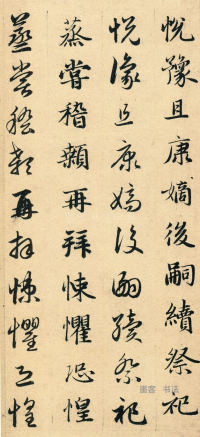 悦豫且康嫡後嗣續祭祀
悦豫且康嫡後嗣續祭祀
蒸嘗稽顙再拜悚懼恐惶
蒸嘗稽顙再拜悚懼恐惶
墨客 书法